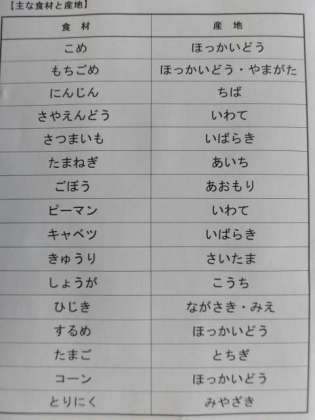 【主な食材と産地】
食材 産地
こめ ほっかいどう
もちごめ ほっかいどう・やまがた
にんじん ちば
さやえんどう いわて
さつまいも いばらき
たまねぎ あいち
ごぼう あおもり
ピーマン いわて
キャベツ いばらき
きゅうり さいたま
しょうが こうち
ひじき ながさき・みえ
するめ ほっかいどう
たまご とちぎ
コーン ほっかいどう
とりにく みやざき